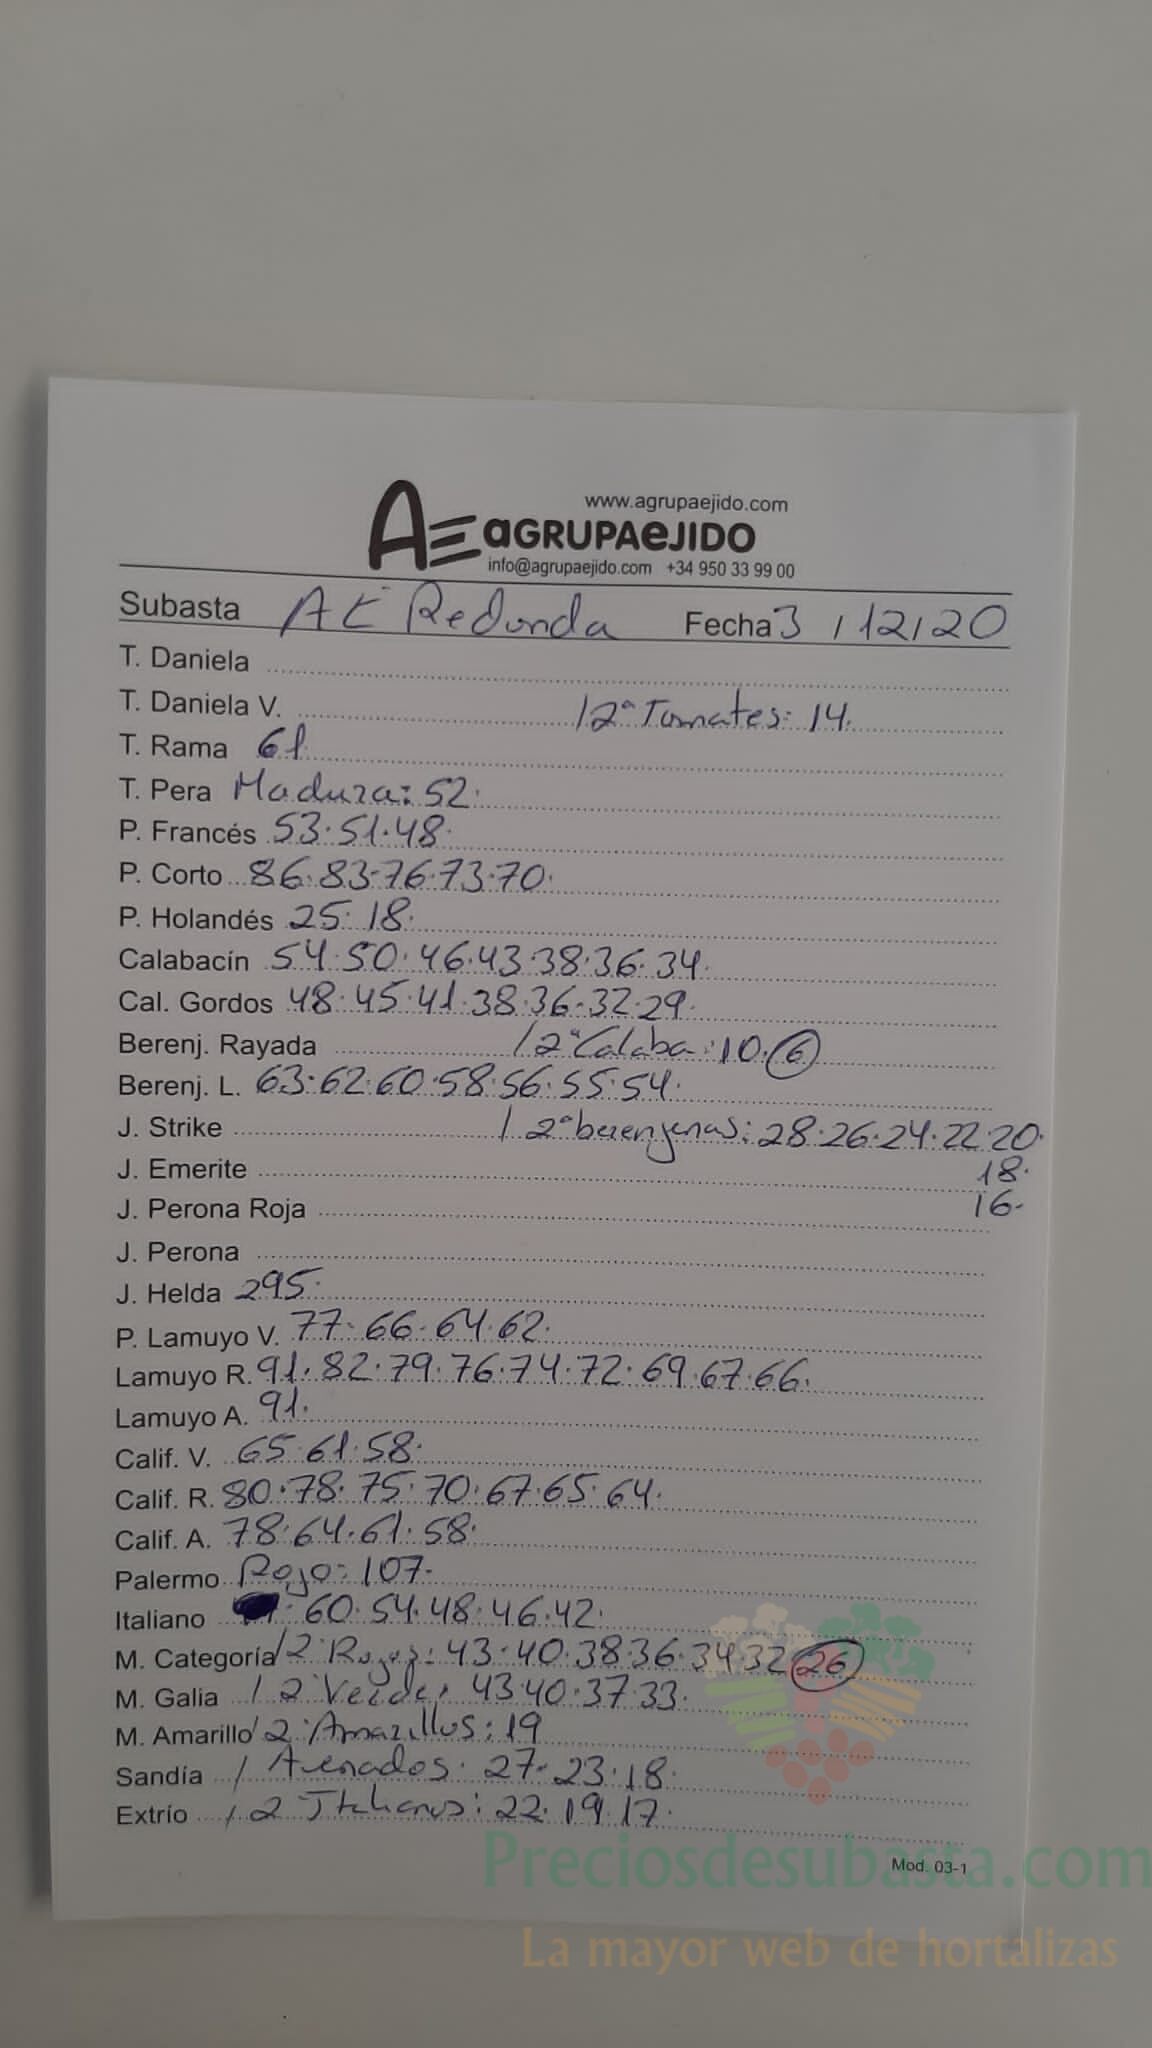 www.agrupaejido.com
AE aGRUPAeJIDO
info@agrupaejido.com +34 950 33 99 00
Subasta AE Redonda Fecha 3 / 12 / 20
T. Daniela
T. Daniela V. / 2ª Tomates: 14.
T. Rama 61
T. Pera Madura: 52.
P. Francés 53.51.48.
P. Corto 86.83-76.73.70.
P. Holandés 25.18.
Calabacín 54.50.46.43.38.36.34.
Cal. Gordos 48.45.41.38.36-32.29.
Berenj. Rayada / 2ª Calaba: 10. 6
Berenj. L. 63.62.60.58.56.55.54.
J. Strike / 2ª berenjenas: 28.26.24.22.20.
J. Emerite 18.
J. Perona Roja 16-
J. Perona
J. Helda 295.
P. Lamuyo V. 77.66.64.62.
Lamuyo R. 91.82.79.76.74.72.69.67.66.
Lamuyo A. 91.
Calif. V. 65.61.58.
Calif. R. 80.78.75.70.67.65.64.
Calif. A. 78.64.61.58.
Palermo Rojo: 107-
Italiano : 60.54.48.46.42.
M. Categoría / 2 Rojos: 43.40.38.36.34.32 26
M. Galia / 2 Verdes 43.40.37.33.
M. Amarillo / 2 Amarillos: 19
Sandía / Asenados. 27-23.18.
Extrío / 2 Italianos: 22.19.17.
Mod. 03-1
Preciosdesubasta.com
La mayor web de hortalizas